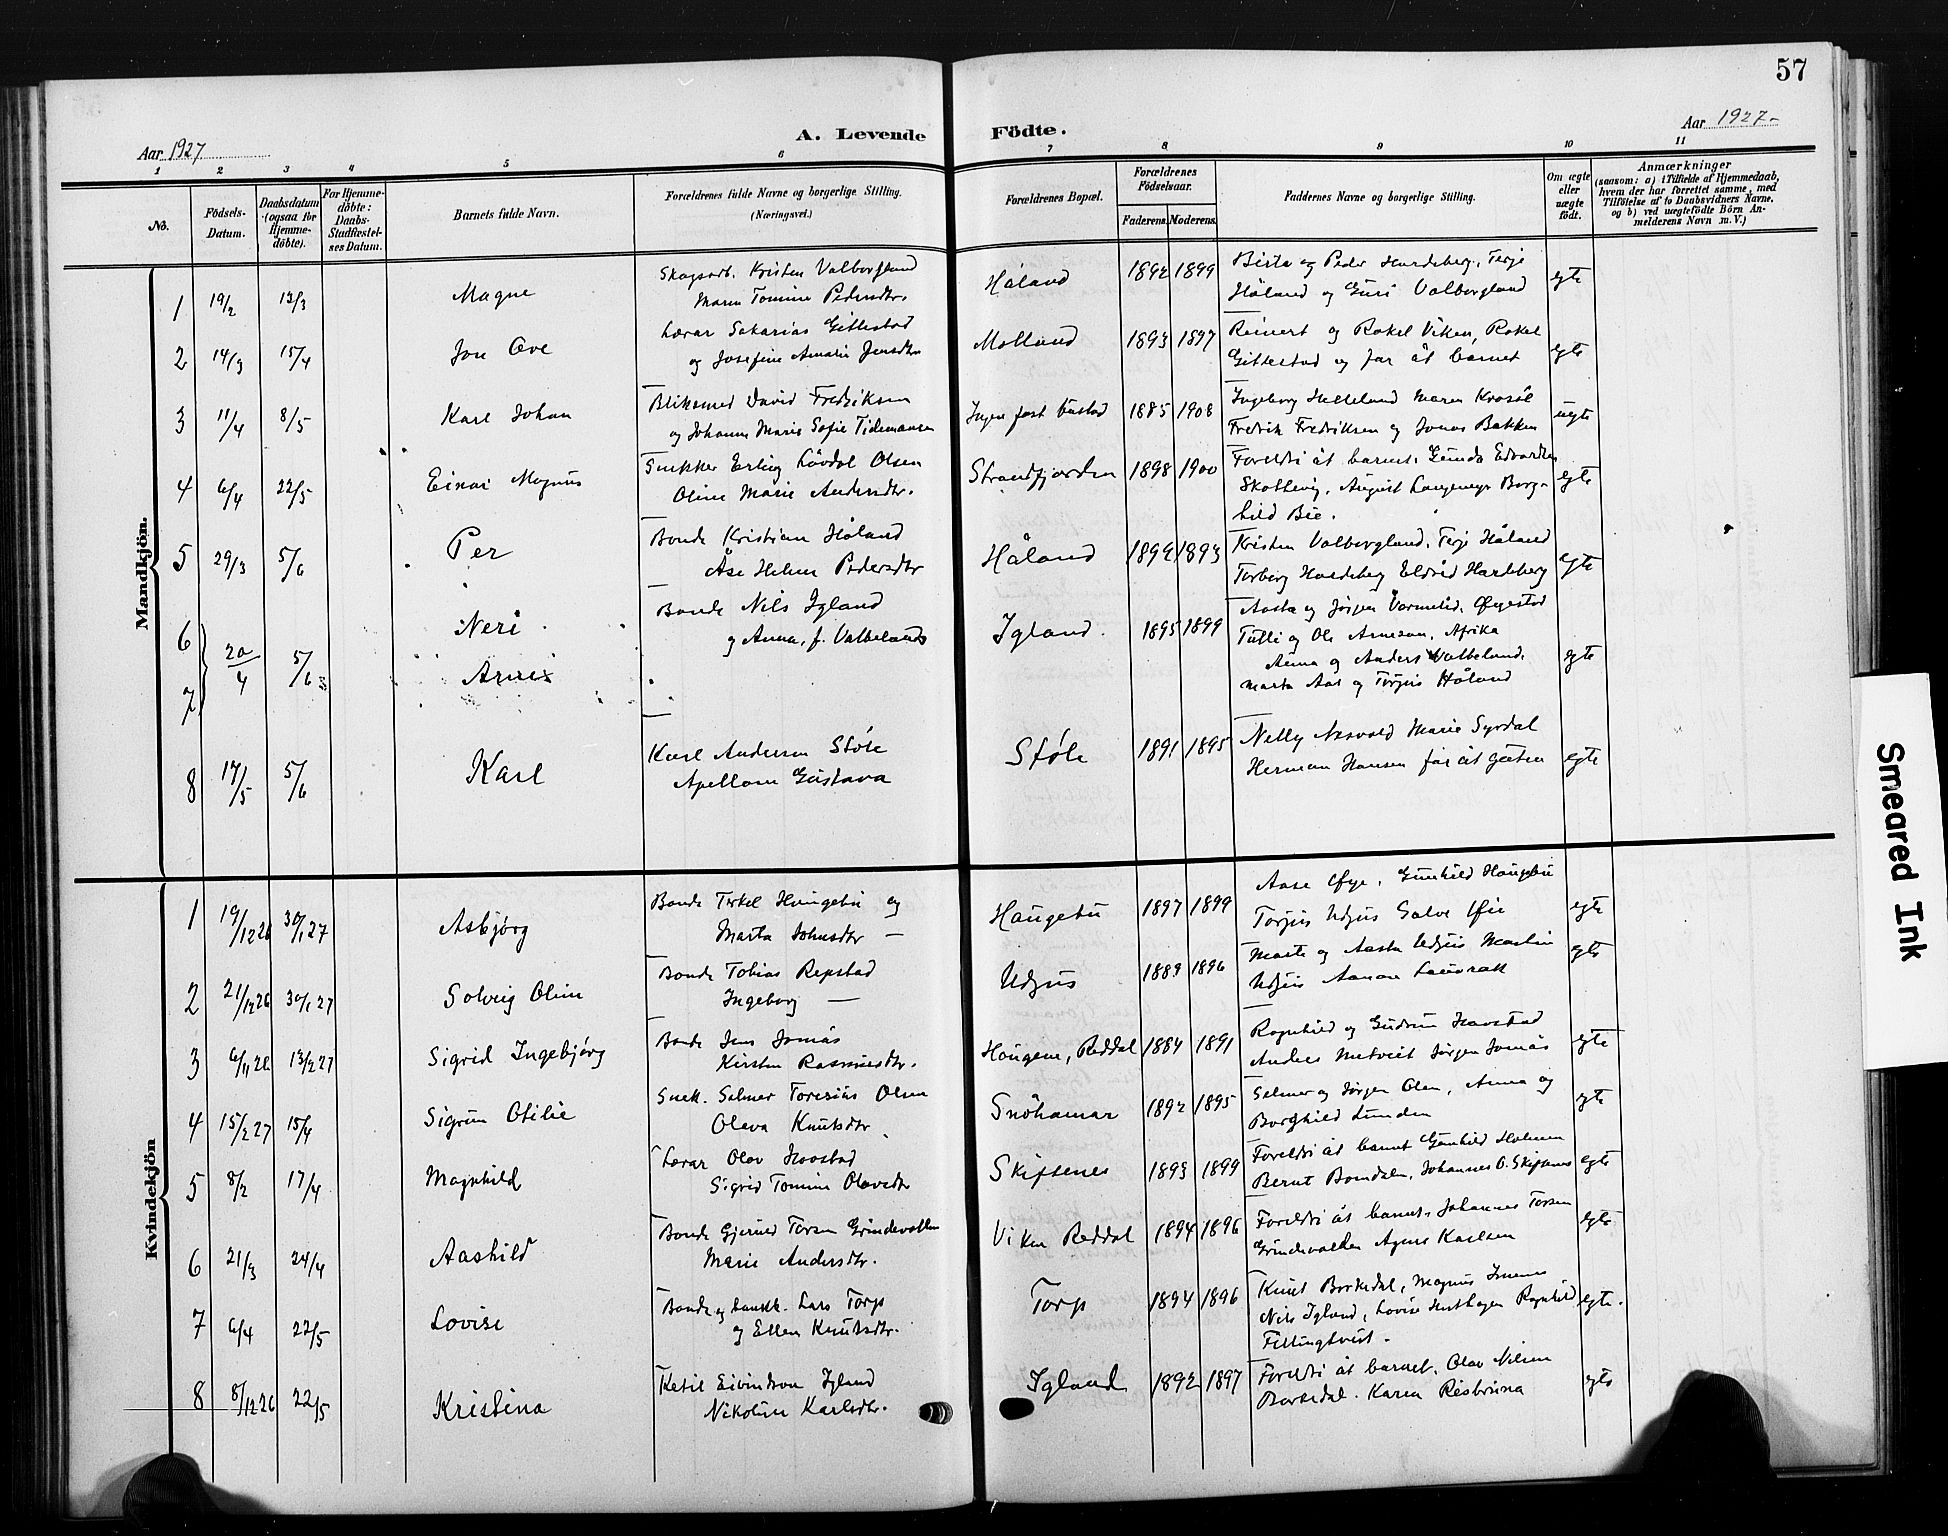 57
Aar 1927
A. Levende Födte.
Aar 1927-
1 2 3 4 5 6 7 8 9 10 11
No.
Födsels-Datum.
Daabsdatum (ogsaa for Hjemme-döbte).
For Hjemme-döbte: Daabs-Stadfæstel-ses Datum.
Barnets fulde Navn.
Forældrenes fulde Navne og borgerlige Stilling.
(Næringsvei.)
Forældrenes Bopæl.
Forældrenes Födselsaar.
Faderens. Moderens.
Faddernes Navne og borgerlige Stilling.
Om ægte eller uægte födt.
Anmærkninger
(saasom: a) i Tilfælde af Hjemmedaab, hvem der har forrettet samme, med Tilföielse af to Daabsvidners Navne, og b) ved uægtefödte Börn An-melderens Navn m. V.)
Mandkjön.
1 19/2 13/3 Magne
Skogsarb. Kristen Valborgland
Maren Tomine Pedersdtr.
Håland 1892 1899
Berta og Peder Hardeberg, Terje
Håland og Guri Valborgland
egte
2 14/3 15/4 Jon Ove
Lærar Sakarias Gittestad
og Josefine Amalie Jensdtr
Molland 1893 1897
Reinert og Rakel Viken, Rakel
Gittestad og far åt barnet
egte
3 11/4 8/5 Karl Johan
Bliksmed David Fredriksen
og Johanne Marie Sofie Tidemansen
Ingen fast bustad 1885 1908
Ingeborg Helleland Maren
Fredrik Fredriksen og Jonas Bakken
uegte
4 6/4 22/5 Einar Magnus
Snekker Erling Lövdal Olsen
Oline Marie Andersdtr.
Strandfjorden 1898 1900
Foreldri åt barnet, Gunda Edvardsen
Skottevig, August Langemyr Borg-
hild Bie.
egte
5 29/3 5/6 Per
Bonde Kristian Håland
Åse Helene Pedersdtr
Håland 1892 1893
Kristen Valborgland, Terje Håland
Torborg Hardeberg Eldrid Hardeberg
egte
6 Neri
7 20/4 5/6 Arne
Bonde Nils Igland
og Anna, f. Valbeland
Igland. 1895 1899
Aasta og Jörgen Öygestad
og Ole Arnesen, Afrika
Anna og Anders Valbeland.
Marta Aas og Torjus Håland
egte
8 17/5 5/6 Karl
Karl Andersen Støle
Apellone Gustava
Støle 1891 1895
Nelly Marie Syrdal
Herman Hansen far åt guten
egte
Kvindekjön
1 19/12 26 30/1 27 Asbjørg
Bonde Terkel Haugebu og
Marta Johnsdtr —
Haugebu 1897 1899
Aase Øye, Gunhild Haugebu
Torjus Udjus Salve Øie
egte
2 21/12 26 30/1 27 Solveig Oline
Bonde Tobias Repstad
Ingeborg —
Udjus 1889 1896
Marte og Aasta Udjus Martin
Udjus Aanon Lauvrak
egte
3 6/11 26 13/2 27 Sigrid Ingebjørg
Bonde Jens Jomås
Kirsten Rasmusdtr.
Haugene, Reddal 1884 1891
Ragnhild og Gudrun Haastad
Anders Jørgen Jomås
egte
4 15/2 27 15/4 Sigrun Otilie
Snek. Selmer Olsen
Olava Knutsdtr
Snöhamar 1892 1895
Selmer og Jørgen Olsen, Anna og
Borghild Lunden
egte
5 8/2 17/4 Magnhild
Lærar Olav Haastad
Sigrid Tomine Olavsdtr
Skiftenes 1893 1899
Foreldri åt barnet Gunhild Holmen
Bernt Bomdalen, Johannes O. Skiftenes
egte
6 21/3 24/4 Aashild
Bonde Gjerud Torsen Grindevollen
Marie Andersdtr.
Viken Reddal 1894 1896
Foreldri åt barnet, Johannes Torsen
Grindevollen Agnes Karlsen
egte
7 6/4 22/5 Lovise
Bonde og bankk. Lars Torp
og Ellen Knutsdtr.
Torp 1894 1896
Knut Borkedal, Magnus
Nils Igland, Lovise Ragnhild
Fillingtveit.
egte.
8 8/12 26 22/5 Kristina
Ketil Eivindson Igland
Nikoline Karlsdtr.
Igland 1892 1897
Foreldri åt barnet, Olav Nilsen
Borkedal. Karen Risbruna
egte
Smeared Ink